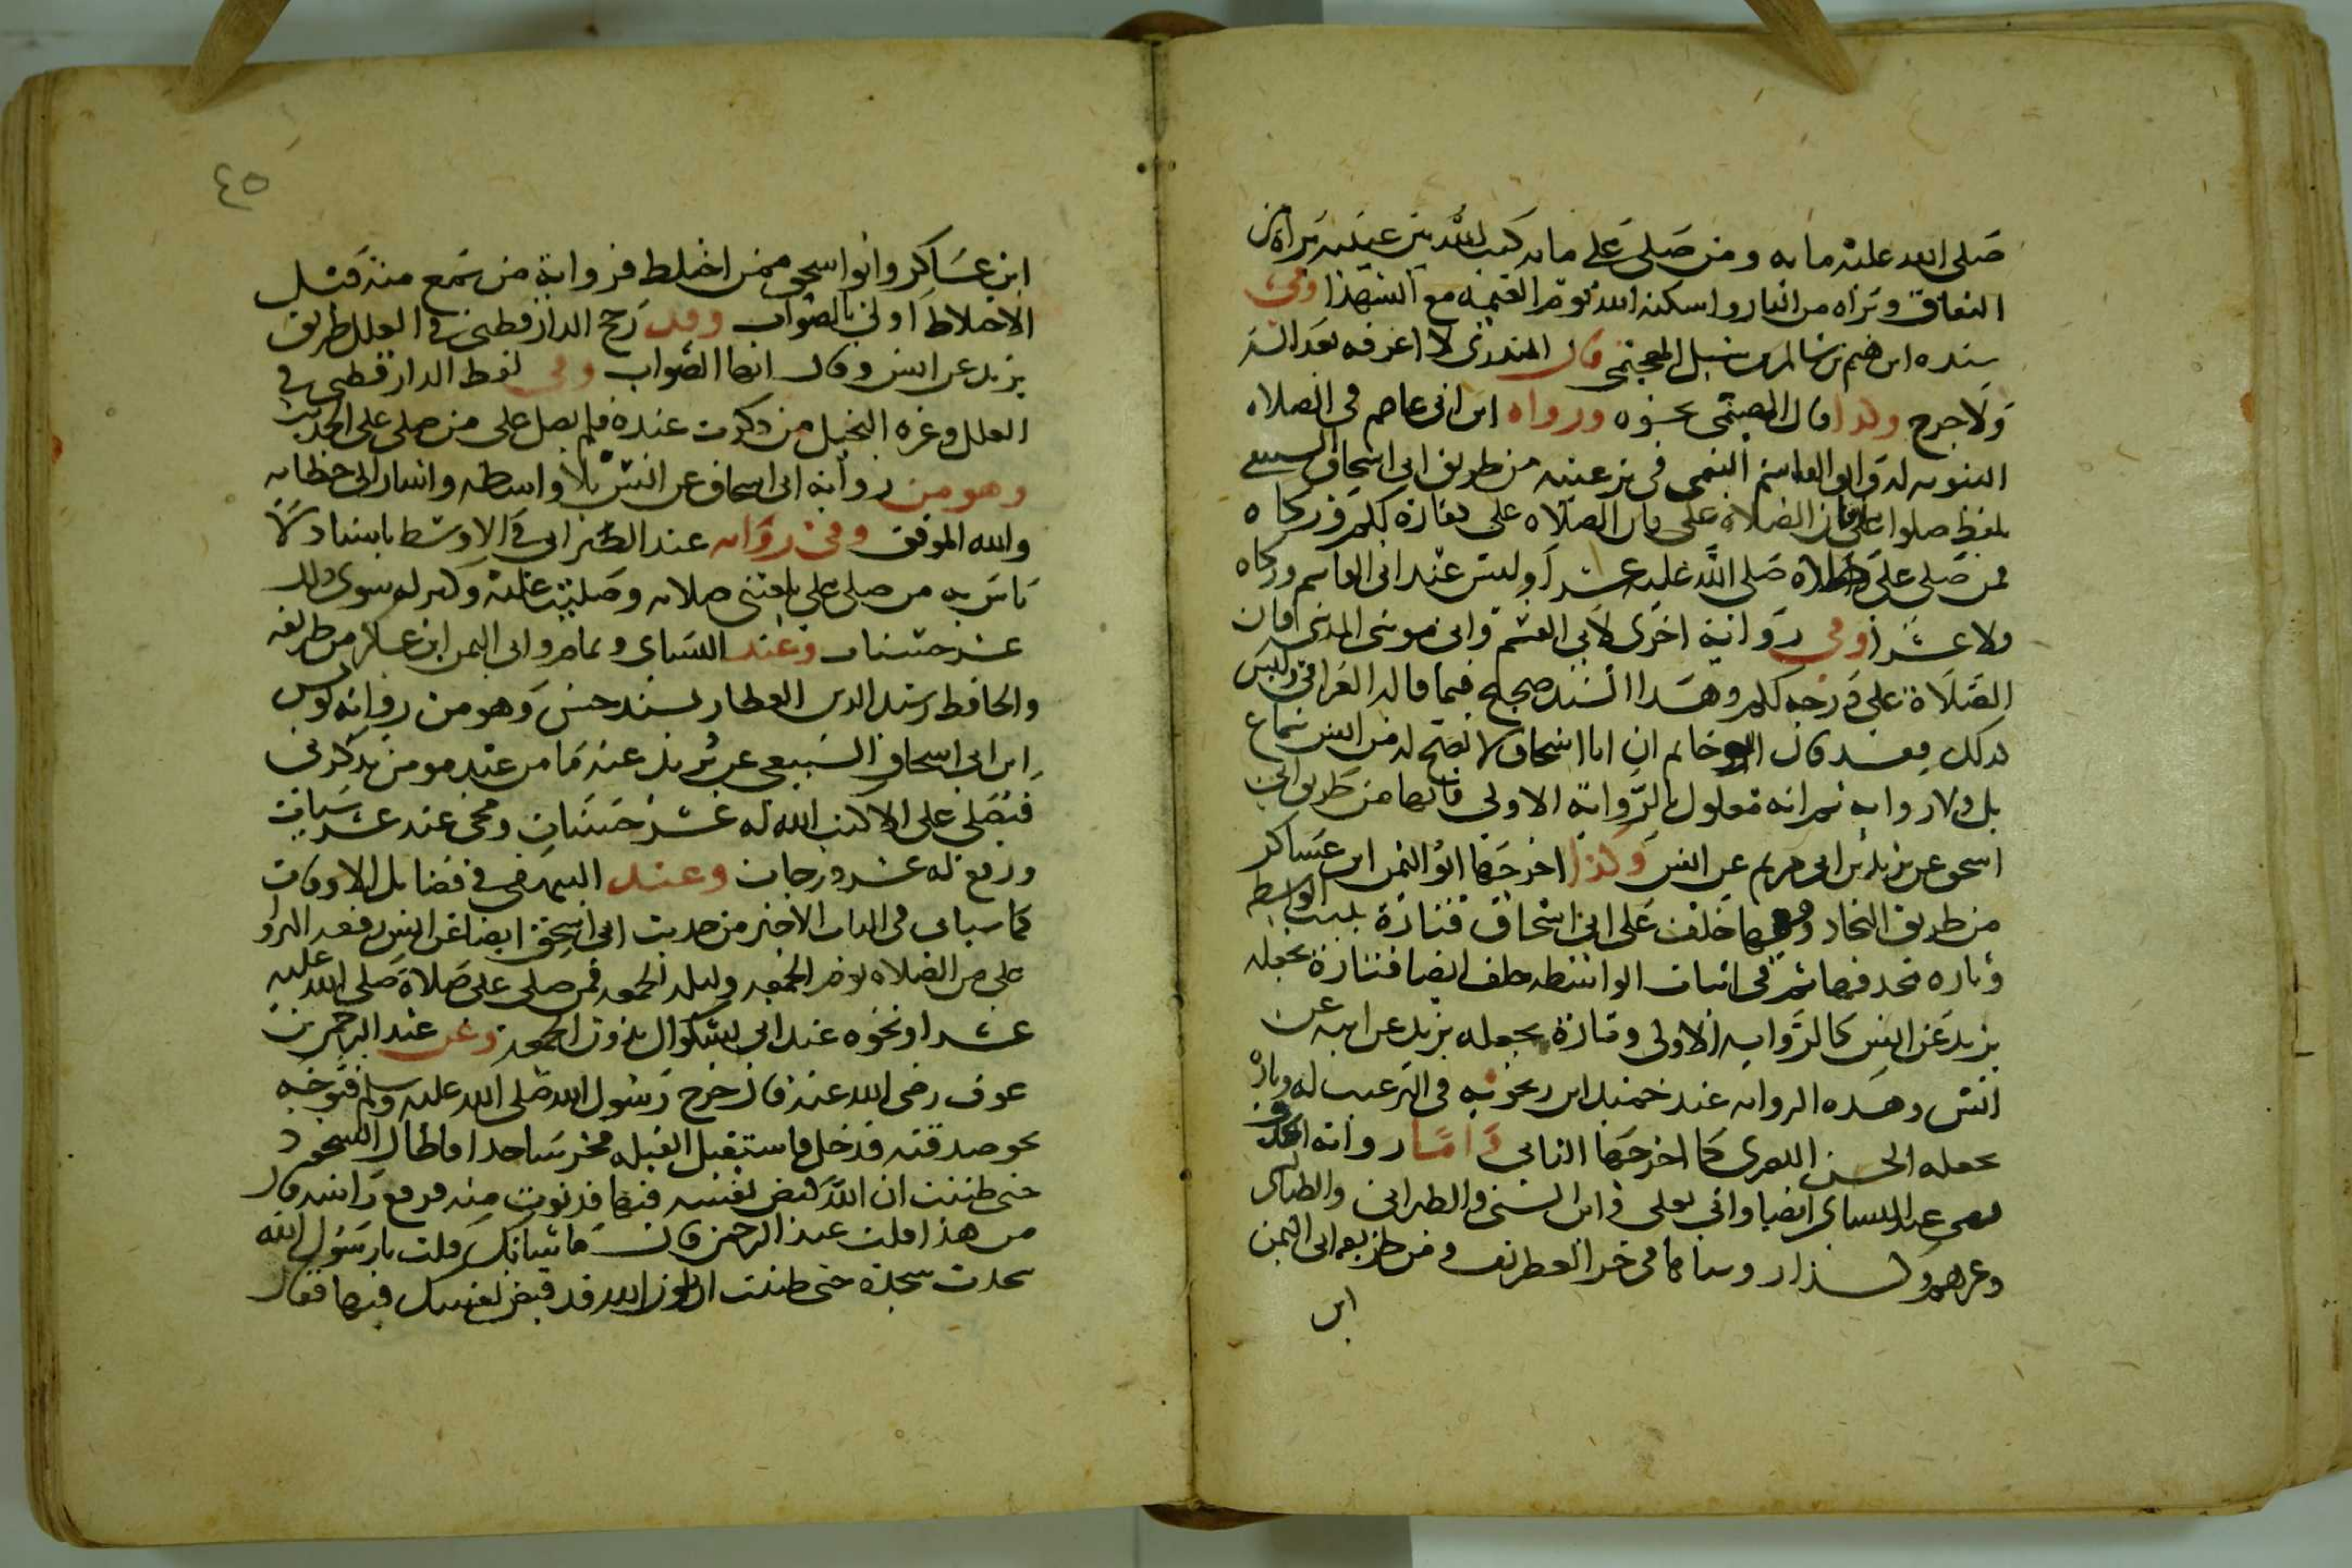 صلى الله عليه مايه ومن صلى على مايه كتب الله بين عينيه براة من
النفاق وبراه من النار واسكنه الله يوم القيمه مع الشهدا وفي
سنده ابرهيم بن سالم بن شبل الهجيمي قال المنذري لا اعرفه بعدالة
ولا جرح ولذا قال الهيثمي بحوه ورواه ابن ابي عاصم في الصلاه
النبويه له وابو القاسم التيمي في ترغيبه من طريق ابي اسحاق السبيعي
بلفظ صلوا علي فان الصلاه علي كفارة لكم وزكاه
فمن صلى علي صلاة صلى الله عليه عشرا وليس عند ابي القاسم وزكاه
ولا عشرا وفي رواية اخرى لابي القسم وابي موسى المديني فان
الصلاة علي درجه لكم وهذا السند صحيح فيما قاله العراقي وليس
كذلك فقد قال ابو حاتم ان ابا اسحاق لا تصح له من انس سماع
بل ولا رواية ثم انه معلول بالرواية الاولى فانها من طريق ابي
اسحق عن بريد بن ابي مريم عن انس وكذا اخرجها ابو اليمن ابن عساكر
من طريق النجاد وفيها خلف على ابي اسحاق فتارة بليت الواسطه
وتاره تحذفها ثم في اثبات الواسطه خلف ايضا فتارة يجعله
بريد عن انس كالرواية الاولى وتارة يجعله بريد عن ابيه عن
انس وهذه الروايه عند حميد ابن زنجويه في الترغيب له وتارة
يجعله الحسن البصري كما اخرجها النسائي واما رواية
فهي عند النسائي ايضا وابي يعلى وابن السني والطبراني والطيالسي
وغيرهم والبزار وسناها في خر العطريف ومن طريقه ابي اليمن
ابن
٤٥
ابن عساكر وابو اسحق ممن اختلط فرواية من سمع منه قبل
الاختلاط اولى بالصواب وقد رجح الدارقطني في العلل طريق
بريد عن انس وقال انها الصواب وفي لفظ الدارقطني في
العلل وغره البخيل من ذكرت عنده فلم يصل علي من صلى علي الحديث
وهو من رواية ابي اسحاق عن انس بلا واسطه واشار الى خطايه
والله الموفق وفي رواية عند الطبراني في الاوسط باسناد لا
باس به من صلى علي بلغتني صلاته وصليت عليه وكتب له سوى ذلك
عشر حسنات وعند النساي وتمام وابي اليمن ابن عساكر من طريقه
والحافظ رشيد الدين العطار بسند حسن وهو من رواية يونس
ابن ابي اسحاق السبيعي عن بريد عنه ما من عبد مومن يذكرني
فيصلي علي الا كتب الله له عشر حسنات ومحى عنه عشر سيات
ورفع له عشر درجات وعند البيهقي في فضايل الاوقات
كما سياتي في الباب الاخير من حديث ابي اسحق ايضا عن انس رفعه اكثروا
علي من الصلاه يوم الجمعه وليلة الجمعه فمن صلى علي صلاة صلى الله عليه
عشرا ونحوه عند ابن بشكوال بدون الجمعه وعن عبد الرحمن بن
عوف رضي الله عنه قال خرج رسول الله صلى الله عليه وسلم فتوجه
نحو صدقته فدخل فاستقبل القبله فخر ساجدا فاطال السجود
حتى ظننت ان الله قبض نفسه فيها فدنوت منه فرفع راسه قال
من هذا قلت عبد الرحمن قال ما شانك قلت يا رسول الله
سجدت سجدة حتى ظننت ان يكون الله قد قبض نفسك فيها فقال